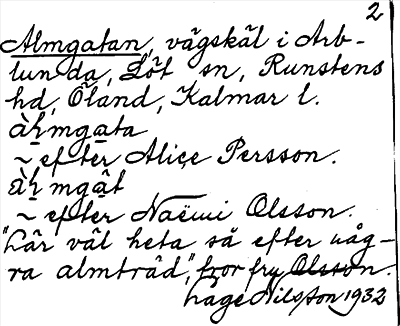 2
Almgatan, vägskäl i Arb-
lunda, Löt sn, Runstens
hd, Öland, Kalmar l.
àl̥mga̲ta
~ efter Alice Persson.
mga̲t
~ efter Naëmi Olsson.
"Lär väl heta så efter någ-
ra almträd", tror fru Olsson.
Låge Nilsson 1932